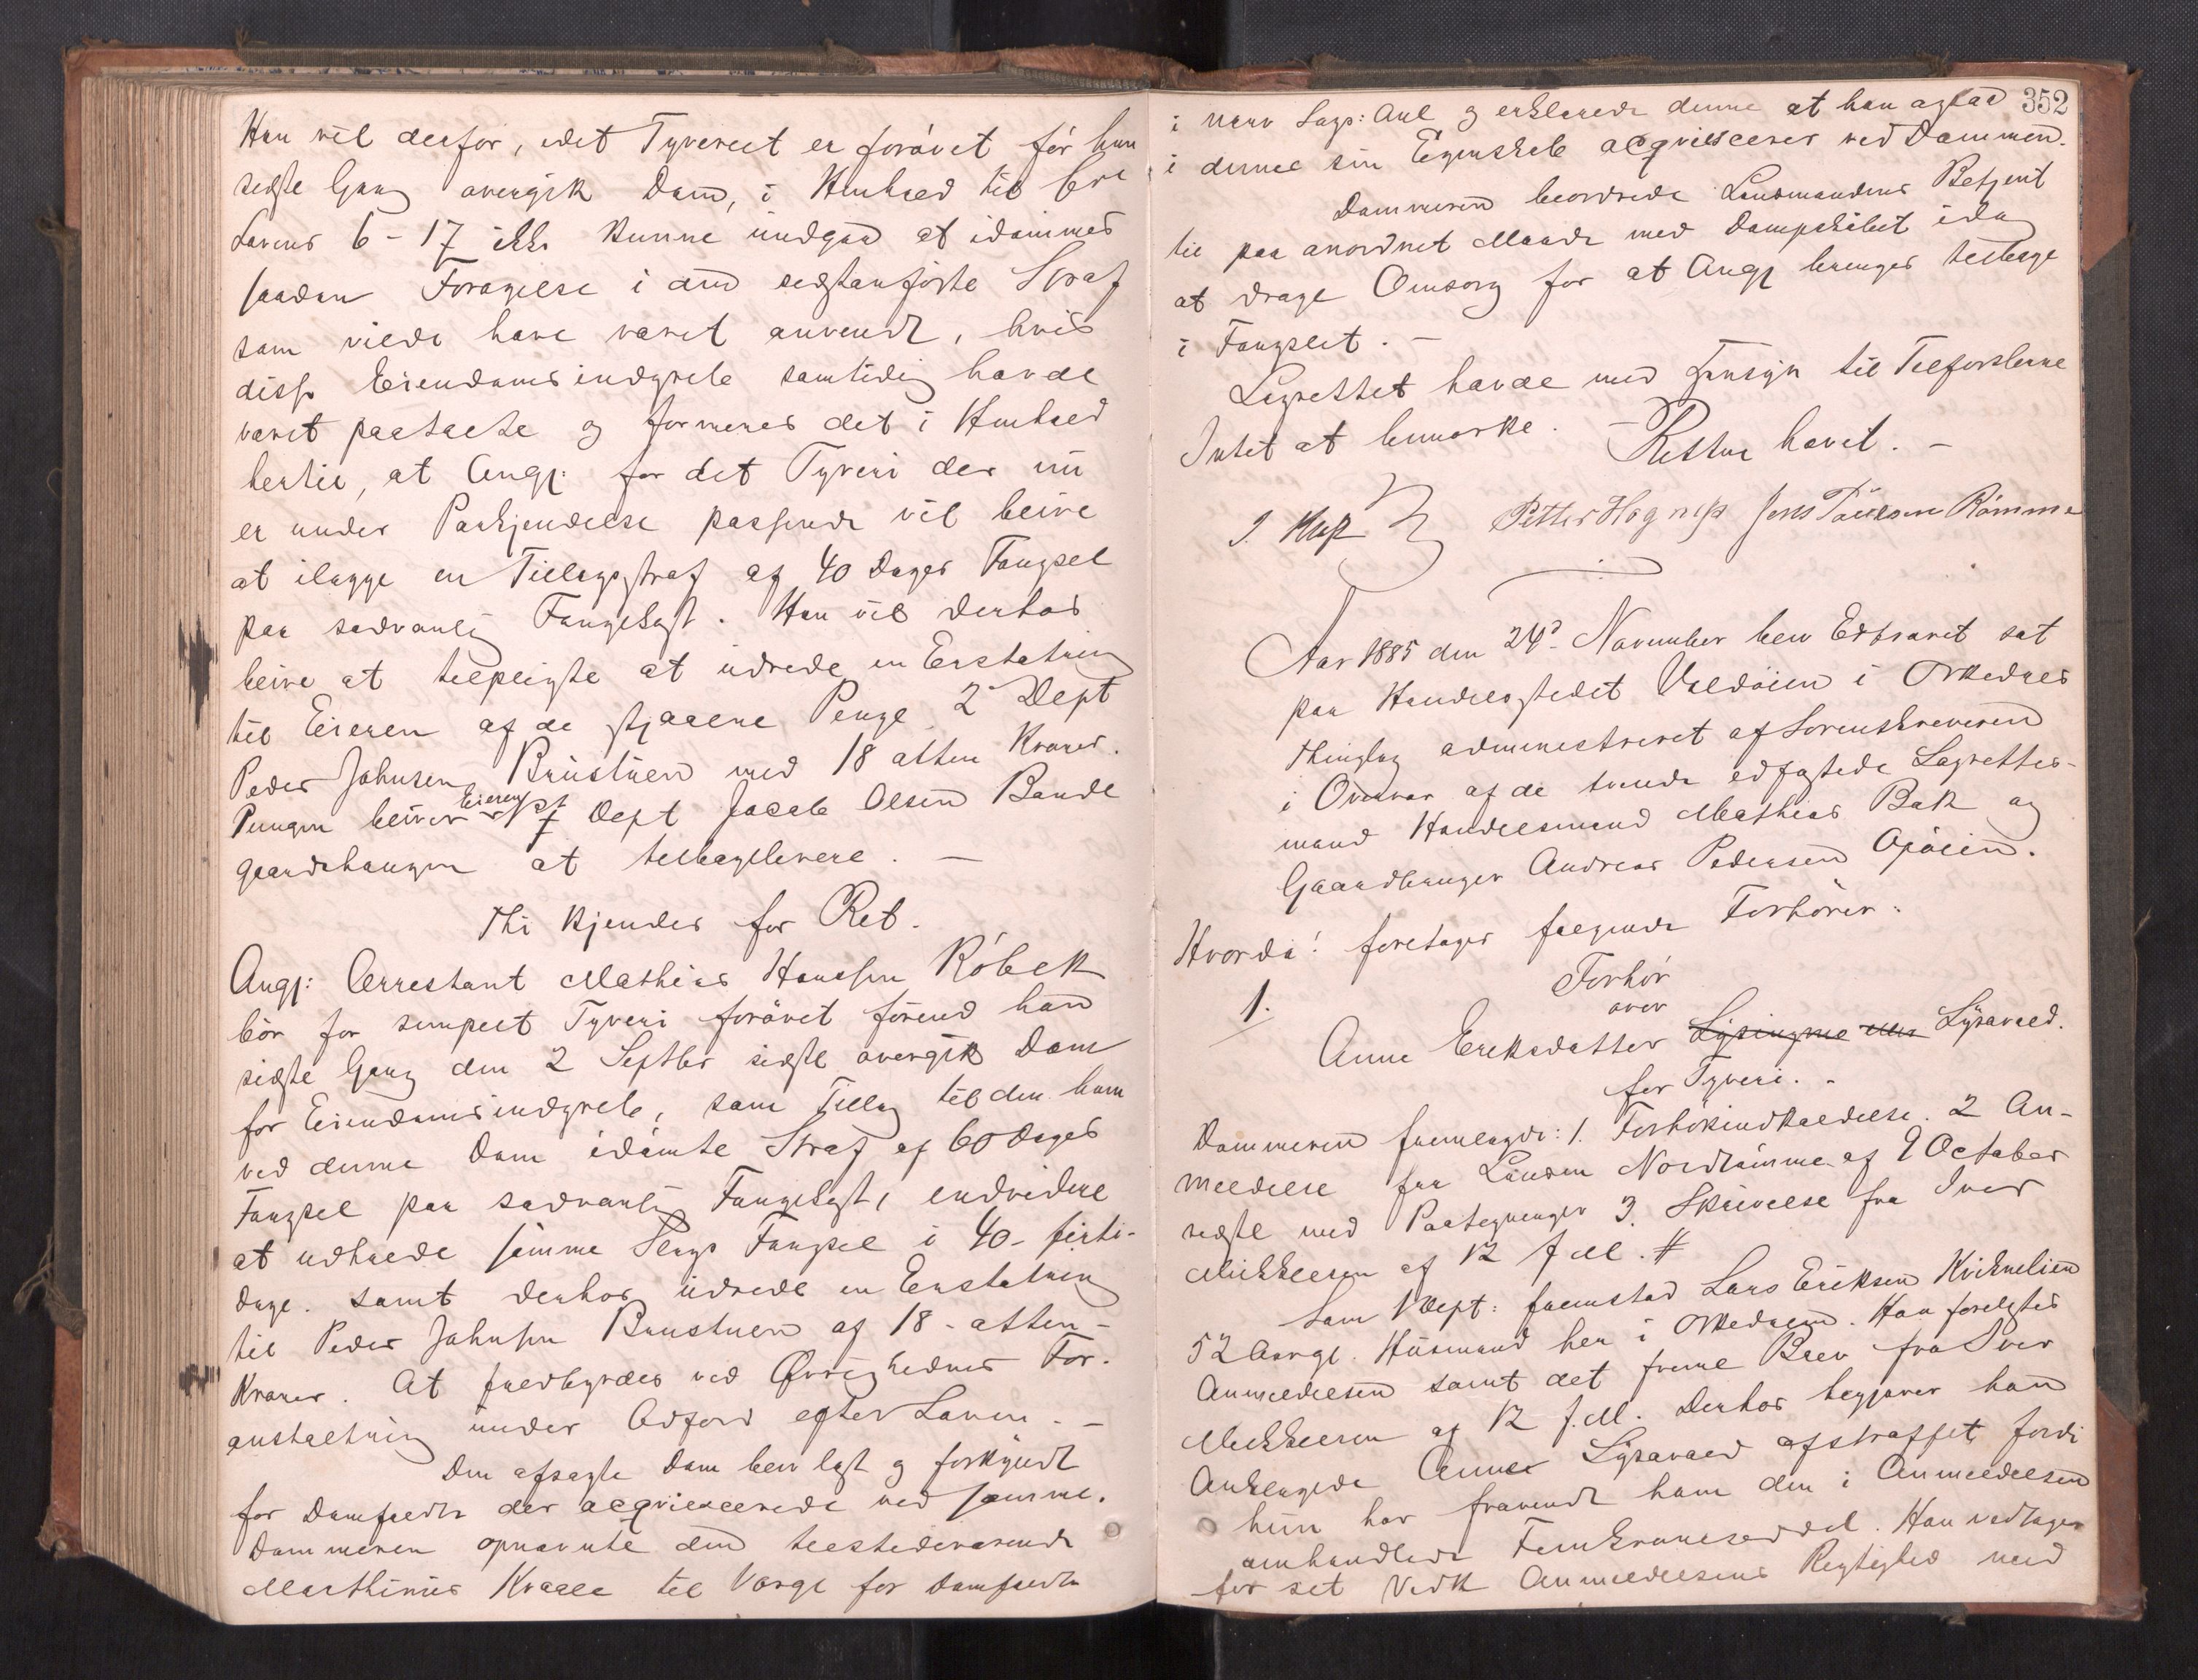 Han vil derfor, idet Tyveriet er forövet för han
sidste Gang overgik Dom, i Henhold til Crl
Lovens 6-17 ikke kunne undgaa at idömmes
saadan Forögelse i den sidstanförte Straf
som vilde have været anvendt, hvis
disse Eiendomsindgreb samtidig havde
været paatalte og formenes det i Henhold
hertil, at Angj: for det Tyveri der nu
er under Paakjendelse passende vil blive
at ilægge en Tillægsstraf af 40 Dages Fængsel
paa sædvanlig Fangekost. Han vil derhos
blive at tilpligte at udrede en Erstatning
til Eieren af de stjaalne Penge 2 Dept
Peder Johnsen Brustuen med 18 atten Kroner.
Pungen bliver Eieren 7 Dept Jacob Olsen
at tilbagelevere. —
Thi kjendes for Ret.
Angj: Arrestant Mathias Hanssen Röbek
bör for simpelt Tyveri forövet förend han
sidste Gang den 2 Septbr sidstl overgik Dom
for Eiendomsindgreb, som Tillæg til den ham
ved denne Dom idömte Straf af 60 Dages
Fængsel paa sædvanlig Fangekost, endvidere
at udholde samme Slags Fængsel i 40 - firti-
Dage. samt derhos udrede en Erstatning
til Peder Johnsen Brustuen af 18 - atten -
Kroner. At fuldbyrdes ved Øvrighedens For-
anstaltning under Adfærd efter Loven. —
Den afsagte Dom blev læst og forkyndt
for Domfældte der acqviescerede ved samme.
Dommeren opnævnte den tilstedeværende
Marthinus Kvaale til Værge for Domfældte
352
i nærv Sags: Anl og erklærede denne at han ogsaa
i denne sin Egenskab acqviescerer ved Dommen.
Dommeren beordrede Lensmandens Betjent
til paa anordnet Maade med Dampskibet idag
at drage Omsorg for at Angj bringes tilbage
i Fængslet. —
Lagrettet havde med Hensyn til Tilförslerne
Intet at bemærke. — Retten hævet. —
Petter Hognes Jens Paulsen Römme
Aar 1885 den 24d November blev Extraret sat
paa Handelsstedet Valdöien i Orkedals
Thinglag administreret af Sorenskriveren
i Overvær af de tvende edfæstede Lagrettes-
mænd Handelsmand Mathias Bak og
Gaardbruger Andreas Pedersen Opöien.
Hvorda! foretages fölgende Forhörer:
1. Forhör
over
Anne Eriksdatter Lysingmo eller Lysavold.
for Tyveri. -
Dommeren fremlagde: 1. Forhörindkaldelse. 2 An-
meldelse fra Lensm Nordrömme af 9 October
sidstl med Paategninger 3. Skrivelse fra Iver
Mikkelsen af 12 f. M. #
Som 1 Dept: fremstod Lars Eriksen Kviknelien
52 Aargl. Husmand her i Orkedalen. Han forelæstes
Anmeldelsen samt det freml Brev fra Iver
Mikkelsen af 12 f. M. Derhos begjærer han
Anklagede Anne Lysavold afstraffet, fordi
hun har fravendt ham den i Anmeldelsen
omhandlede Femkroneseddel. Han vedtager
for sit Vedk Anmeldelsens Rigtighed med